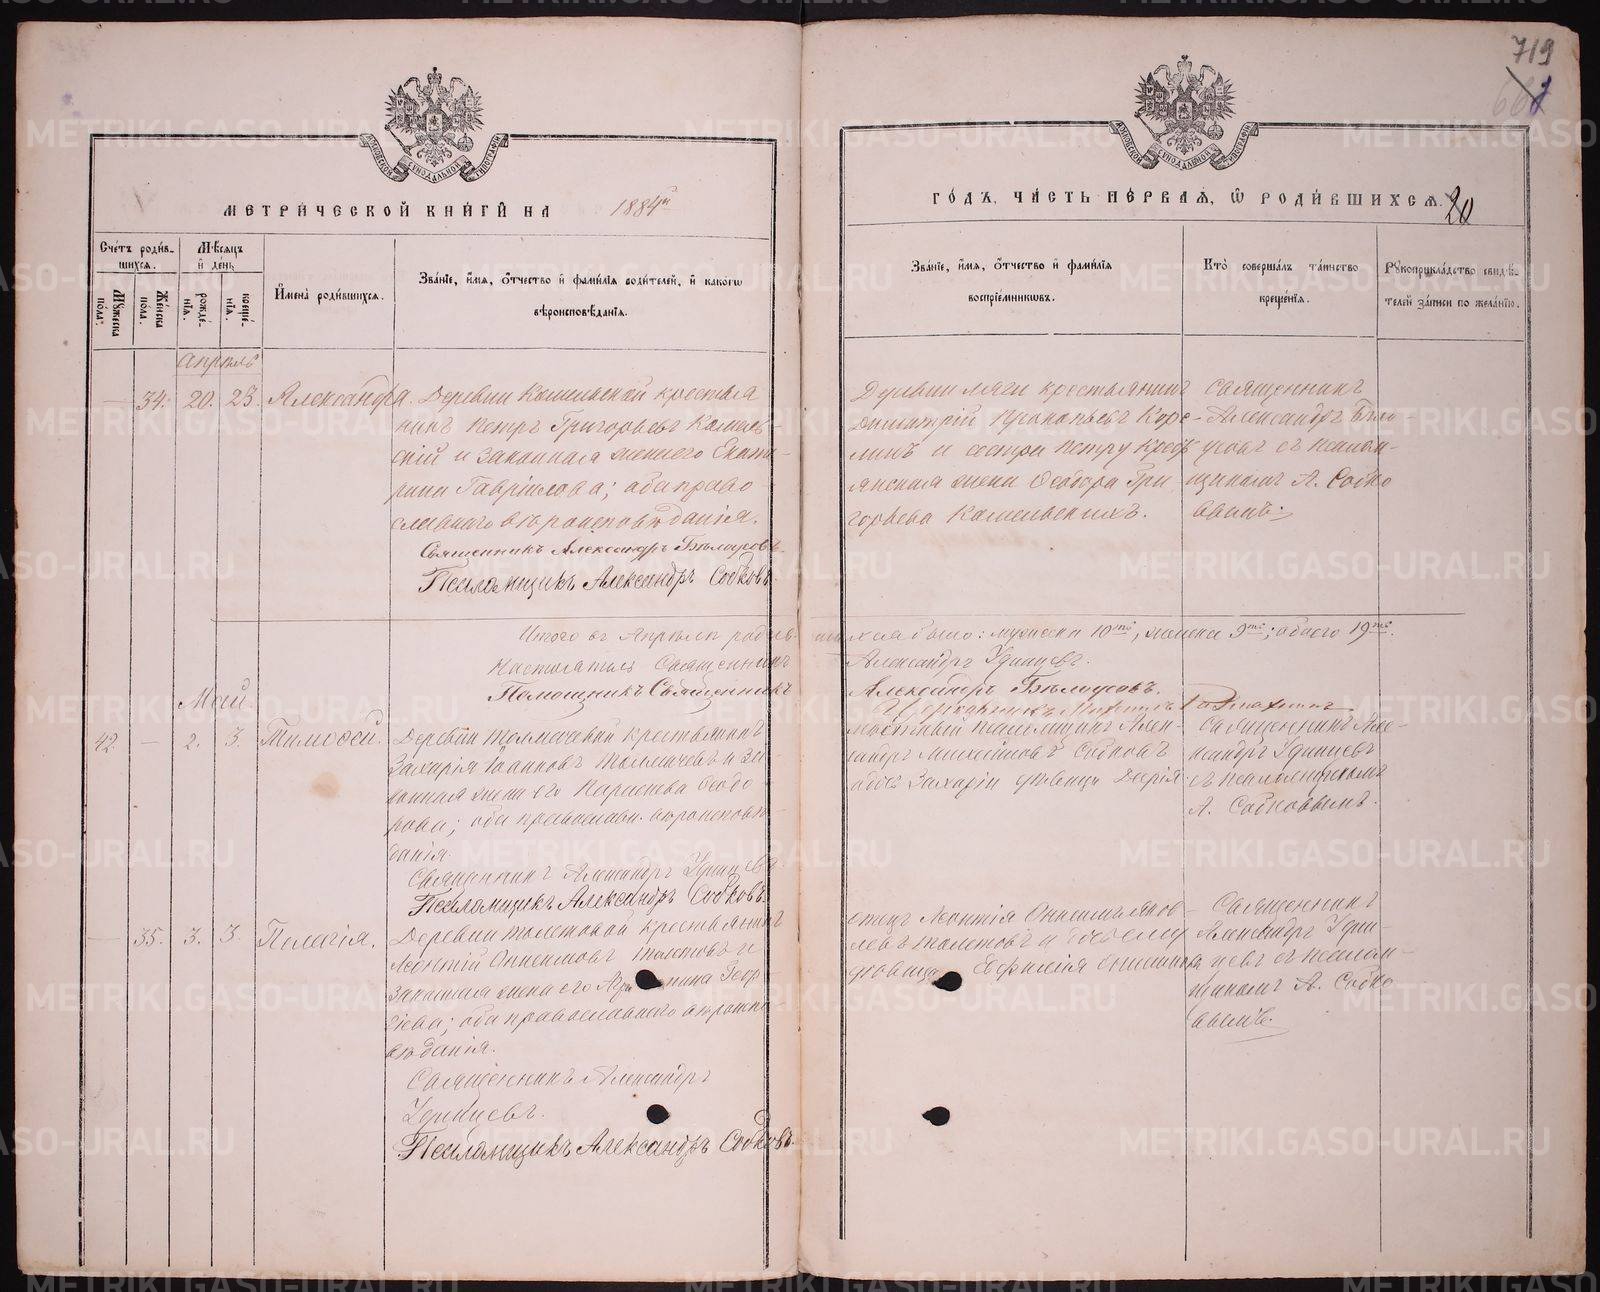 719
МЕТРИ́ЧЕСКОЙ КНИ́ГИ НА 1884й
ГО́ДЪ, ЧА́СТЬ ПЕ́РВАЯ, Ѽ РОДИ́ВШИХСЯ. 20
Сче́тъ роди́в-
шихся.
Мѣ́сяцъ
и҆ де́нь
Му́жеска по́ла.
Же́нска по́ла.
рожде́-
нїя.
креще́-
нїя.
И҆мена̀ роди́вшихся.
Зва́нїе, и҆́мя, ѻ҆́тчество и҆ фами́лїя роди́телей, и҆ како́гѡ
вѣроисповѣ́данїя.
Зва́нїе, и҆́мя, ѻ҆́тчество и҆ фами́лїя
воспрїе́мникѡвъ.
Кто̀ соверша́лъ та́инство
креще́нїя.
Рꙋкоприкла́дство свидѣ́-
телей за́писи по жела́нїю.
Апрѣль
— 34. 20. 23. Александра.
Деревни Камельской крестья
нинъ Петръ Григорьевъ Камель-
скій и законная жена его Екате-
рина Гавріилова; оба право
славнаго вѣроисповѣданія.
Священникъ Александръ Бѣлоусовъ
Псаломщикъ Александръ Собковъ
крестьянинъ
Димитрій Прокопьевъ
и сестра Петру
жена Ѳеодора Гри
горьева Камельскихъ.
Священникъ
Александръ Бѣло-
усовъ съ псалом-
щикомъ А. Собко
вымъ.
Итого въ Апрѣлѣ родив-шихся было: мужеска 10ть, женска 9ть; обоего 19ть.
Настоятель Священникъ Александръ Удинцевъ.
Помощникъ Священникъ Александръ Бѣлоусовъ.
Май
42. — 2. 3. Тимоѳей.
Деревни Толмачевой крестьянинъ
Захарія Іоанновъ Толмачевъ и за-
конная жена его Параскева Ѳеодо
рова; оба православн. вѣроисповѣ-
данія.
Священникъ Александръ Удинцевъ
Псаломщикъ Александръ Собковъ
мѣстный псаломщикъ Алек-
сандръ Собковъ
Захаріи дѣвица Дарія
Священникъ Але-
ксандръ Удинцевъ
съ псаломщикомъ
А. Собковымъ.
— 35. 3. 3. Пелагія.
Деревни Толстовой крестьянинъ
Леонтій Онисимовъ Толстовъ и
законная жена его Агриппина Геор-
гіева; оба православнаго вѣроиспо-
вѣданія.
Священникъ Александръ
Удинцевъ.
Псаломщикъ Александръ Собковъ.
отецъ Леонтія Онисимъ Яков-
левъ Толстовъ и дочь ему
дѣвица Евфимія Онисимова
Священникъ
Александръ Удин-
цевъ съ псалом-
щикомъ А. Собко
вымъ.
METRIKI.GASO-URAL.RU